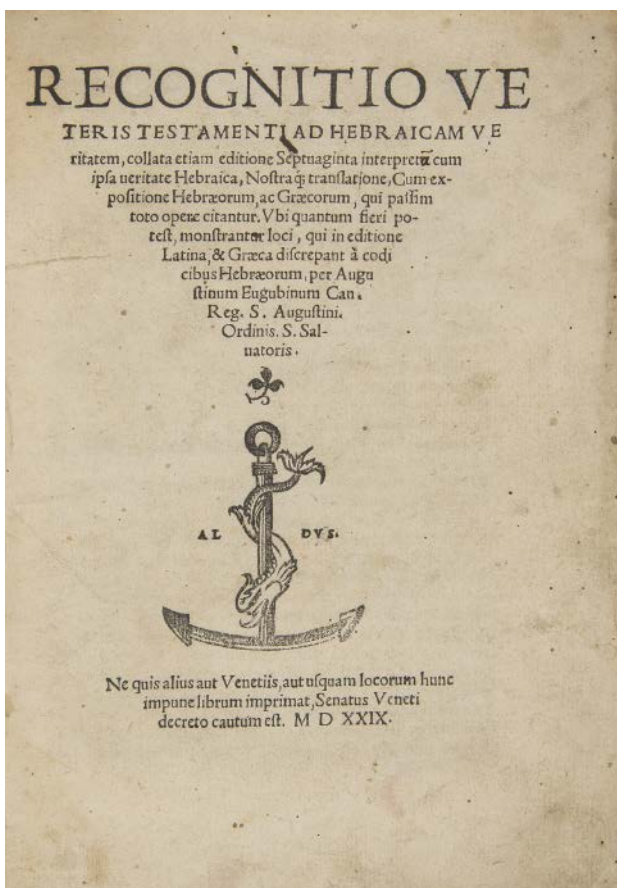 RECOGNITIO VE
TERIS TESTAMENTI AD HEBRAICAM VE
ritatem, collata etiam editione Septuaginta interpretū cum
ipsa ueritate Hebraica, Nostraq; translatione, Cum ex-
positione Hebræorum, ac Græcorum, qui passim
toto opere citantur. Vbi quantum fieri po-
test, monstrantur loci, qui in editione
Latina, & Græca discrepant à codi
cibus Hebræorum, per Augu
stinum Eugubinum Can.
Reg. S. Augustini.
Ordinis. S. Sal-
uatoris.
AL DVS.
Ne quis alius aut Venetiis, aut usquam locorum hunc
impune librum imprimat, Senatus Veneti
decreto cautum est. M D XXIX.